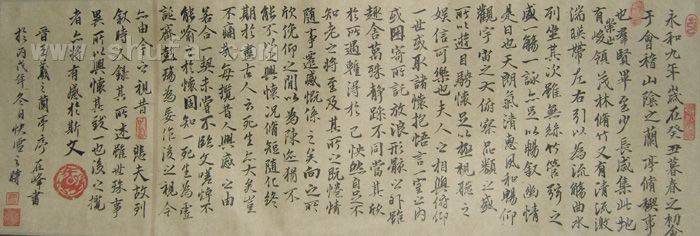 永和九年歲在癸丑暮春之初會
于會稽山陰之蘭亭脩禊事
也群賢畢至少長咸集此地
有崇山峻領茂林脩竹又有清流激
湍映帶左右引以為流觴曲水
列坐其次雖無絲竹管弦之
盛一觴一詠亦足以暢叙幽情
是日也天朗氣清惠風和暢仰
觀宇宙之大俯察品類之盛
所以遊目騁懷足以極視聽之
娛信可樂也夫人之相與俯仰
一世或取諸懷抱悟言一室之內
或因寄所託放浪形骸之外雖
趣舍萬殊靜躁不同當其欣
於所遇暫得於己快然自足不
知老之將至及其所之既惓情
隨事遷感慨係之矣向之所
欣俛仰之間以為陳迹猶不
能不以之興懷況脩短隨化終
期於盡古人云死生亦大矣豈
不痛哉每攬昔人興感之由
若合一契未嘗不臨文嗟悼不
能喻之於懷固知一死生為虛
誕齊彭殤為妄作後之視今
亦由今之視昔 悲夫故列
叙時人錄其所述雖世殊事
異所以興懷其致一也後之攬
者亦將有感於斯文
晉王羲之蘭亭序 在峰書
於丙戌年冬日快雪之時